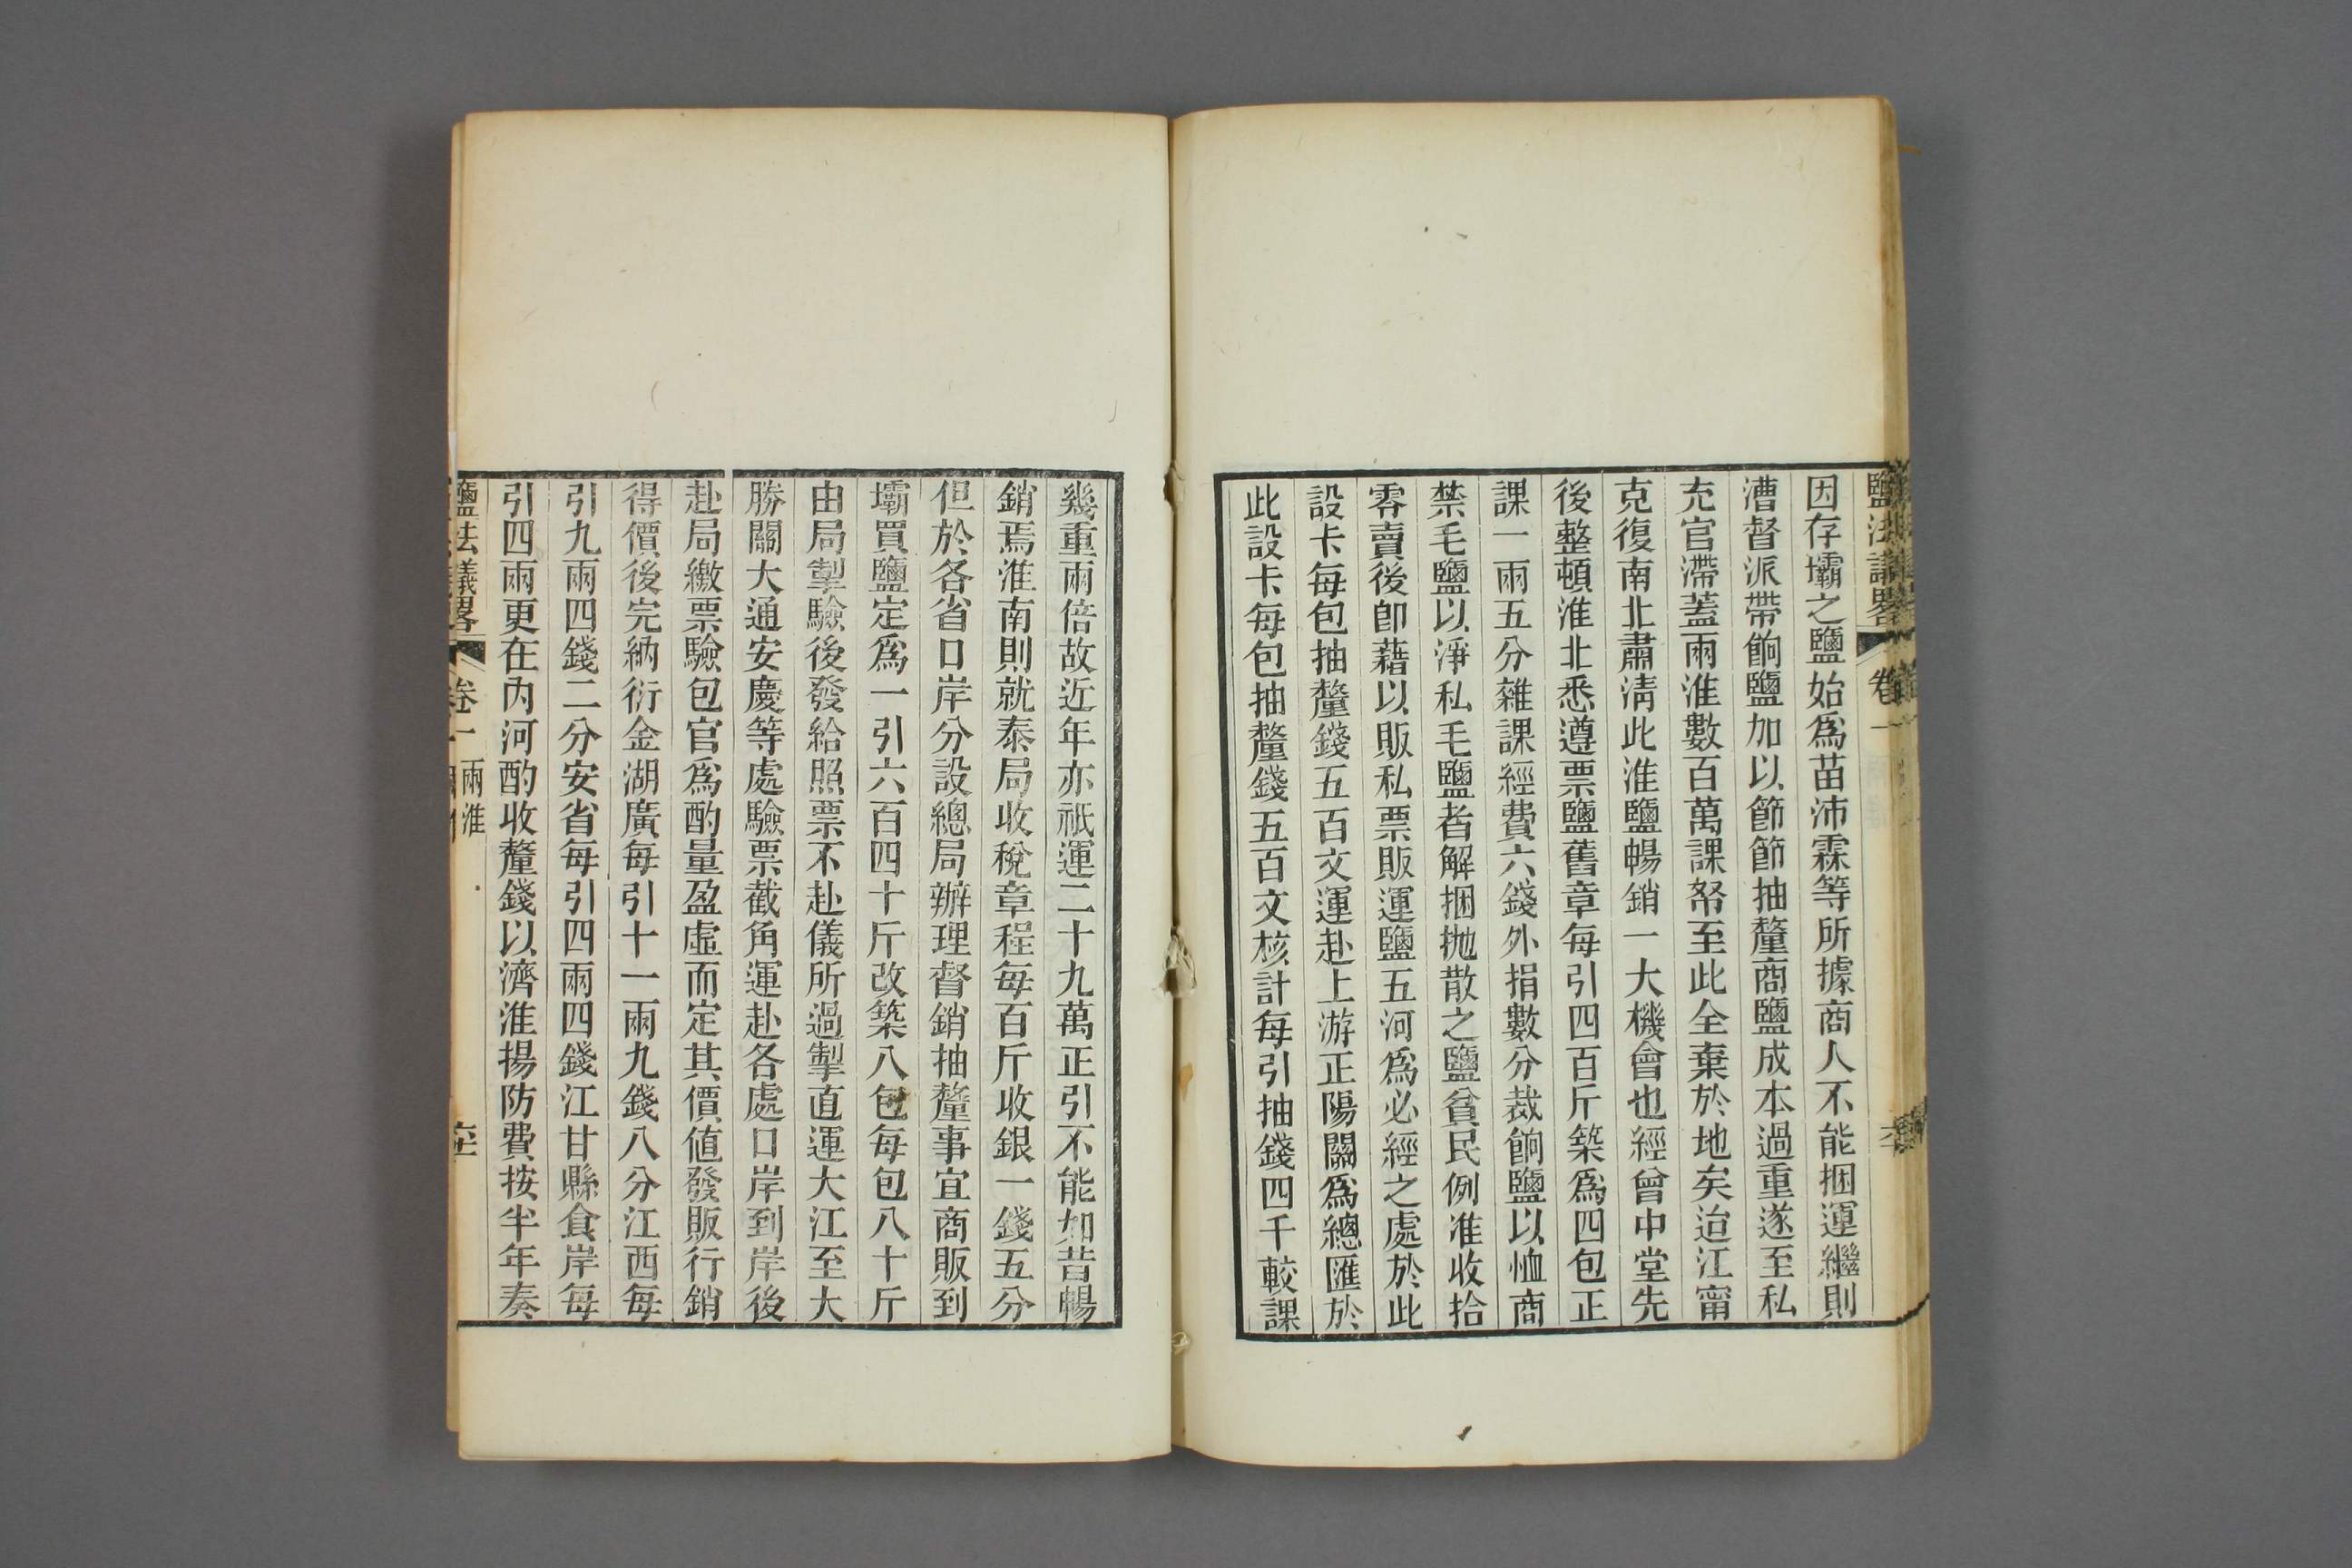 鹽法議畧 卷一
因存壩之鹽始爲苗沛霖等所據商人不能捆運繼則
漕督派帶餉鹽加以節節抽釐商鹽成本過重遂至私
充官滯蓋兩淮數百萬課帑至此全棄於地矣迨江甯
克復南北肅淸此淮鹽暢銷一大機會也經曾中堂先
後整頓淮北悉遵票鹽舊章每引四百斤築爲四包正
課一兩五分雜課經費六錢外捐數分裁餉鹽以恤商
禁毛鹽以淨私毛鹽者解捆拋散之鹽貧民例准收拾
零賣後卽藉以販私票販運鹽五河爲必經之處於此
設卡每包抽釐錢五百文運赴上游正陽關爲總匯於
此設卡每包抽釐錢五百文核計每引抽錢四千較課
幾重兩倍故近年亦祇運二十九萬正引不能如昔暢
銷焉淮南則就泰局收稅章程每百斤收銀一錢五分
但於各省口岸分設總局辦理督銷抽釐事宜商販到
壩買鹽定爲一引六百四十斤改築八包每包八十斤
由局掣驗後發給照票不赴儀所過掣直運大江至大
勝關大通安慶等處驗票截角運赴各處口岸到岸後
赴局繳票驗包官爲酌量盈虛而定其價値發販行銷
得價後完納衍金湖廣每引十一兩九錢八分江西每
引九兩四錢二分安省每引四兩四錢江甘縣食岸每
引四兩更在內河酌收釐錢以濟淮揚防費按半年奏
鹽法議畧 卷一 兩淮